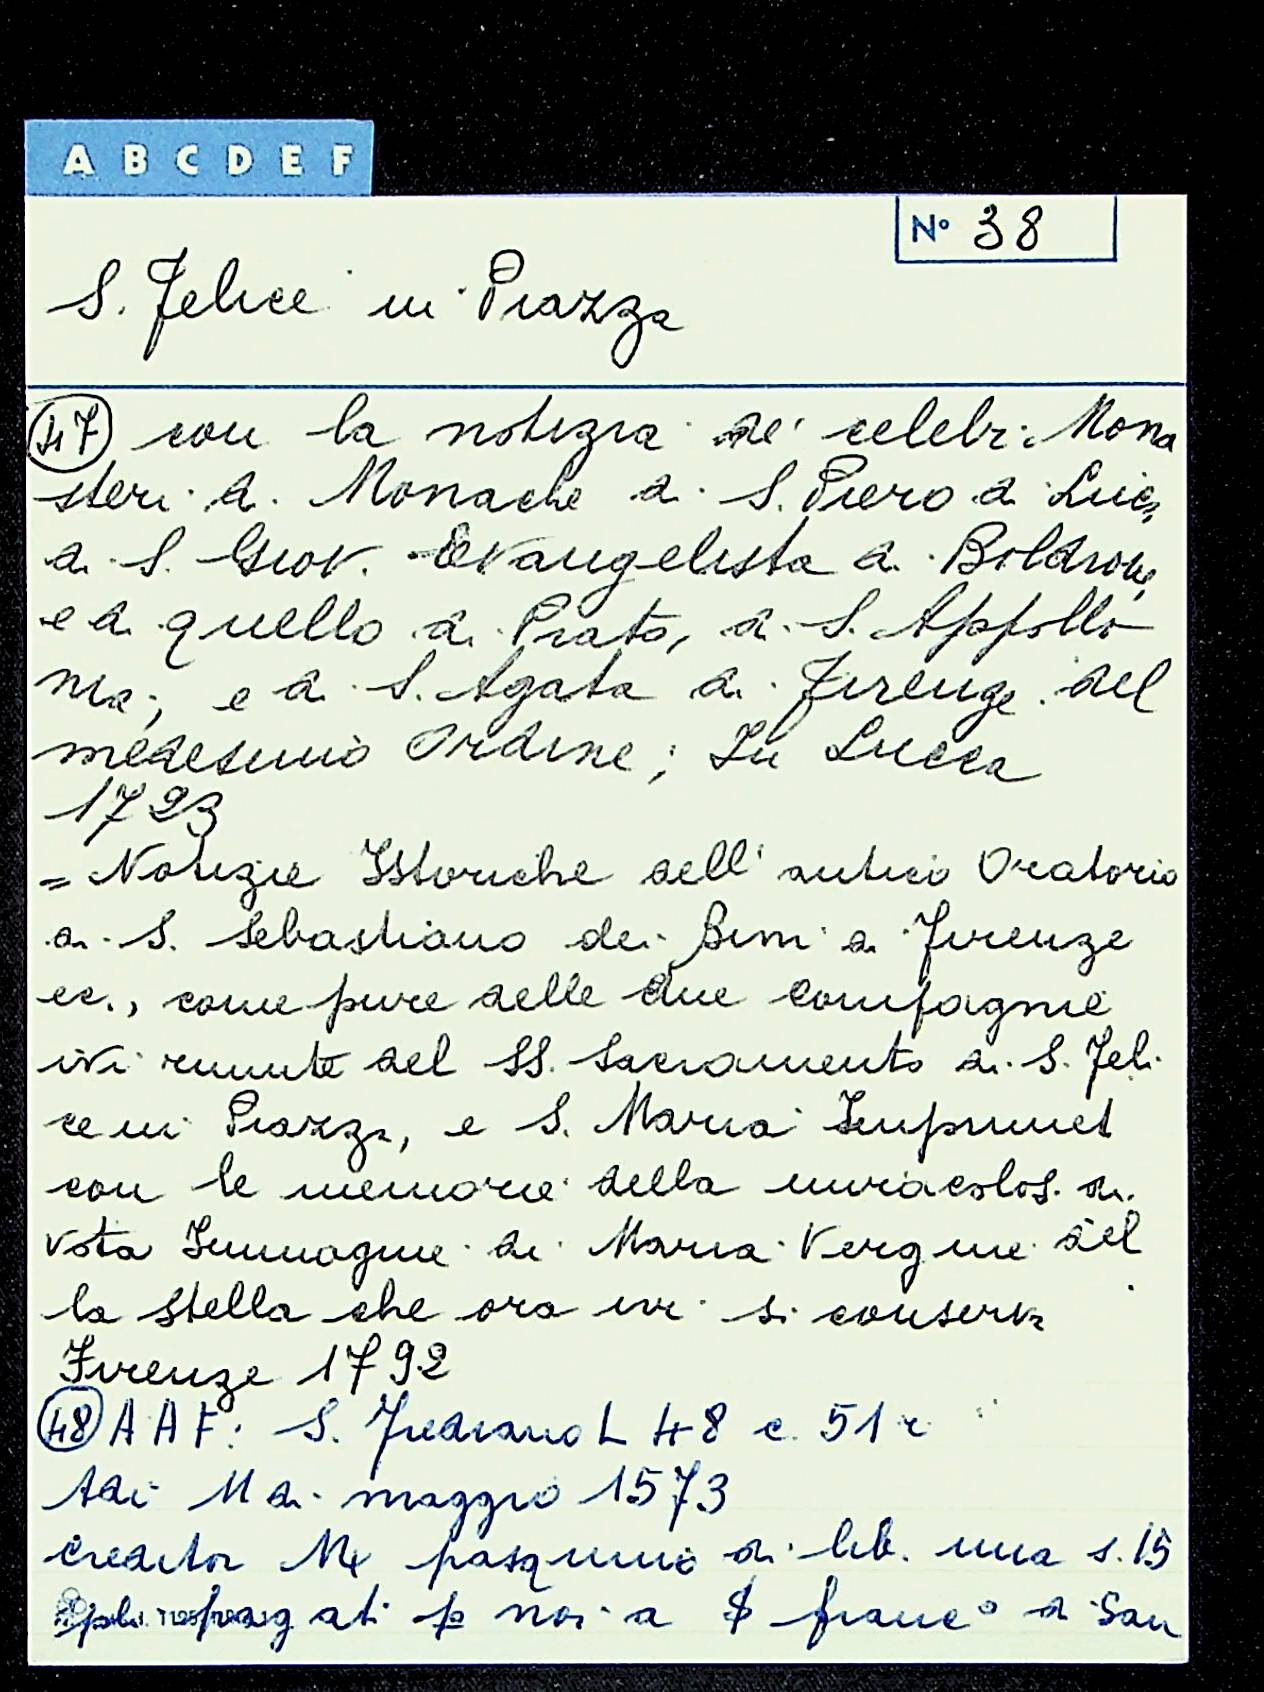 A B C D E F
N° 38
S. Felice in Piazza
47 con la notizia de' celebri Mona
steri di Monache di S. Piero di Luco,
di S. Giov. Evangelista di Boldrone,
e di quello di Prato, di S. Appollo
nia; e di S. Agata di Firenze del
medesimo Ordine; In Lucca
1723
= Notizie Istoriche dell' antico Oratorio
di S. Sebastiano dei Bini di Firenze
ec., come pure delle due Compagnie
ivi riunite del SS. Sacramento di S. Feli
ce in Piazza, e S. Maria Imprunet
con le memorie della miracolos. di
vota Immagine di Maria Vergine del
la Stella che ora ivi si conserva
Firenze 1792
48 A A F: S. Frediano L 48 c. 51 r
Adi 11 di maggio 1573
creditor pasquino di lib. una s. 15
pli pagati p noi a franc° di San